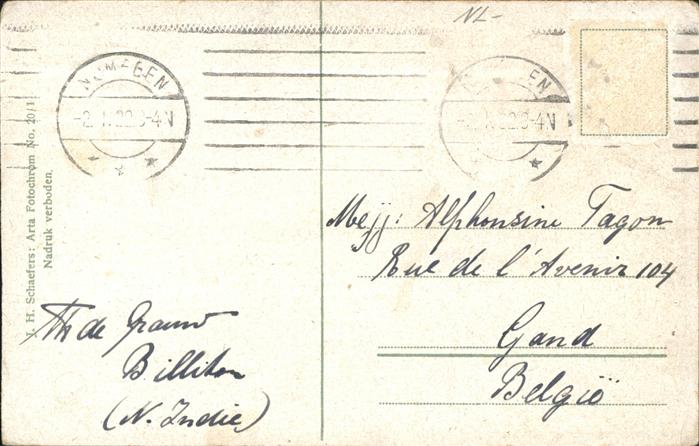 NL-
NIJMEGEN
-2.1.22.3-4N
EN
22.3-4N
J. H. Schaefers: Arta Fotochrom No. 20/1
Nadruk verboden.
Mejj: Alphonsine Tagon
Rue de l'Avenir 104
Gand
België
Th de Graauw
Billiton
(N. Indië)